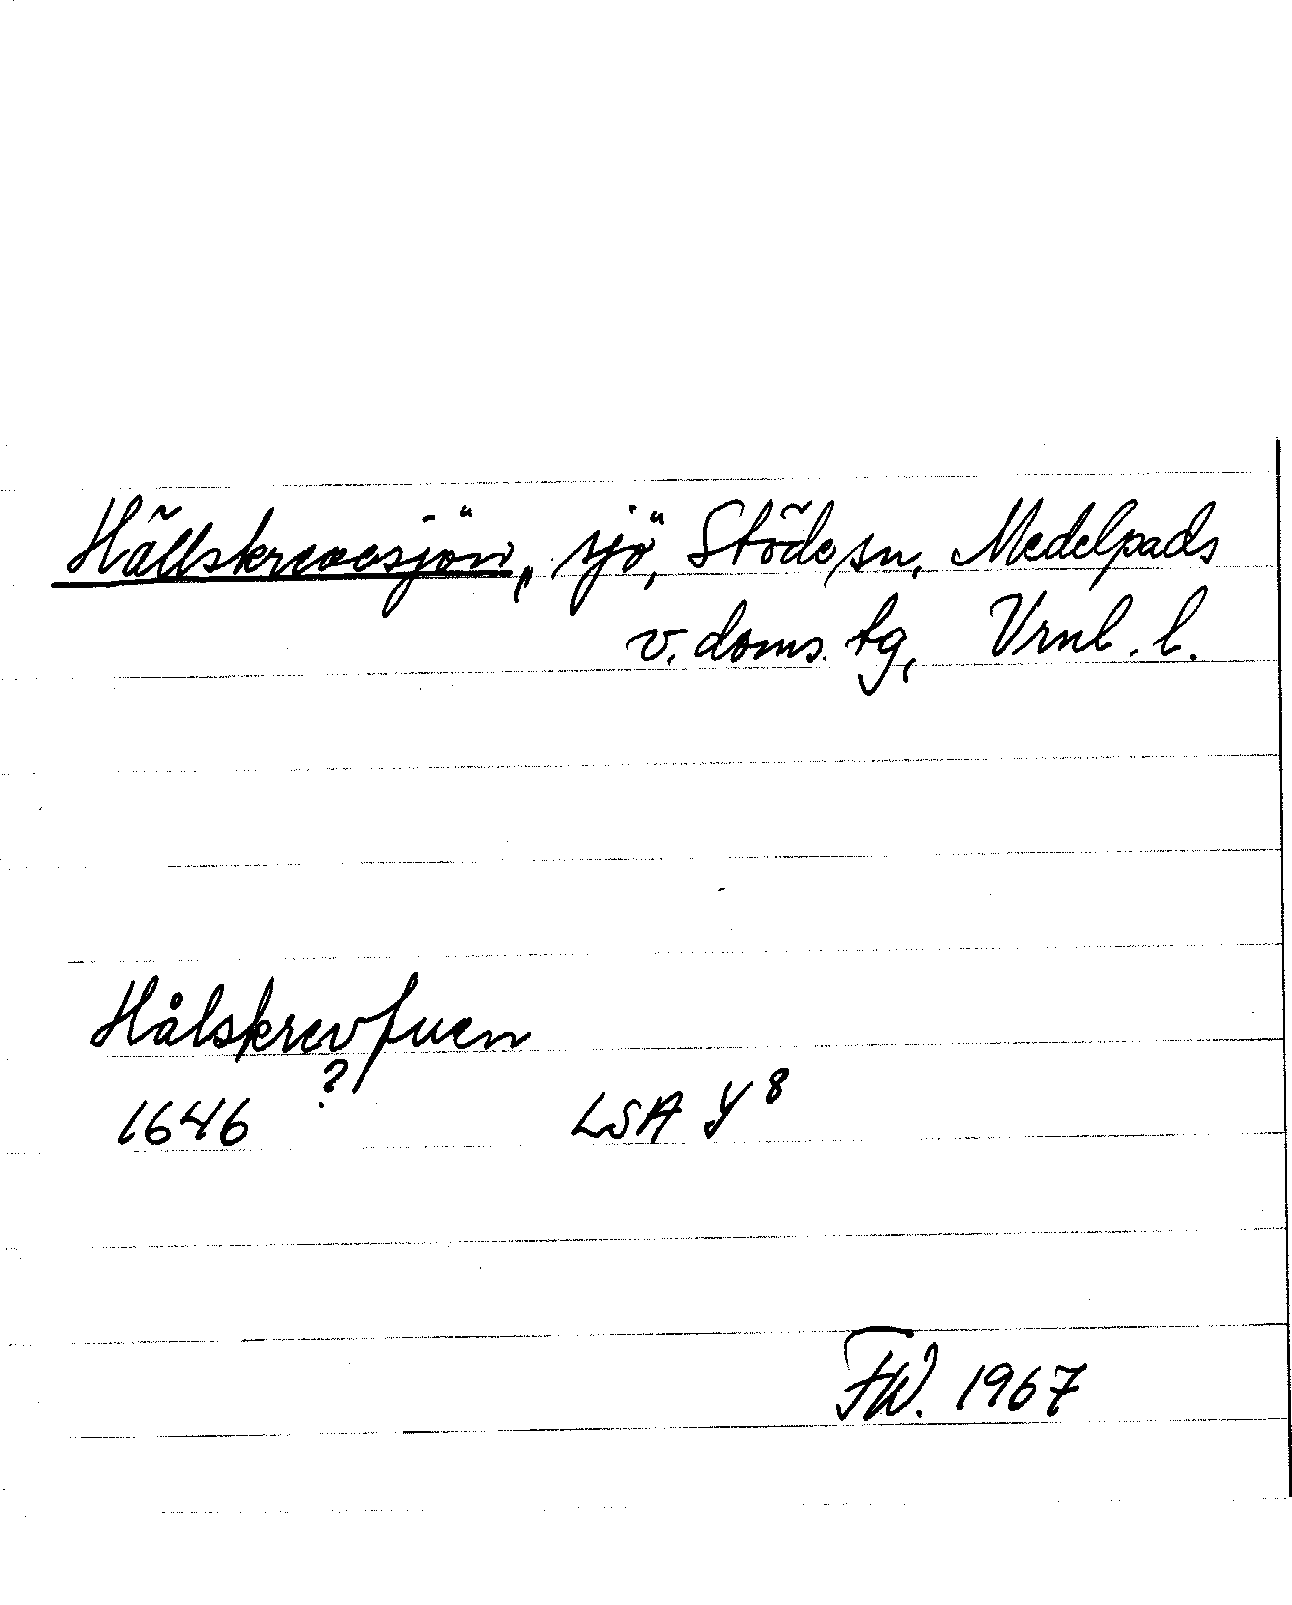 Hällskrevesjön, sjö, Stöde sn, Medelpads
v. doms. tg, Vrnl. l.
Hålskrevsuen
?
1646 LSA Y 8
FW. 1967